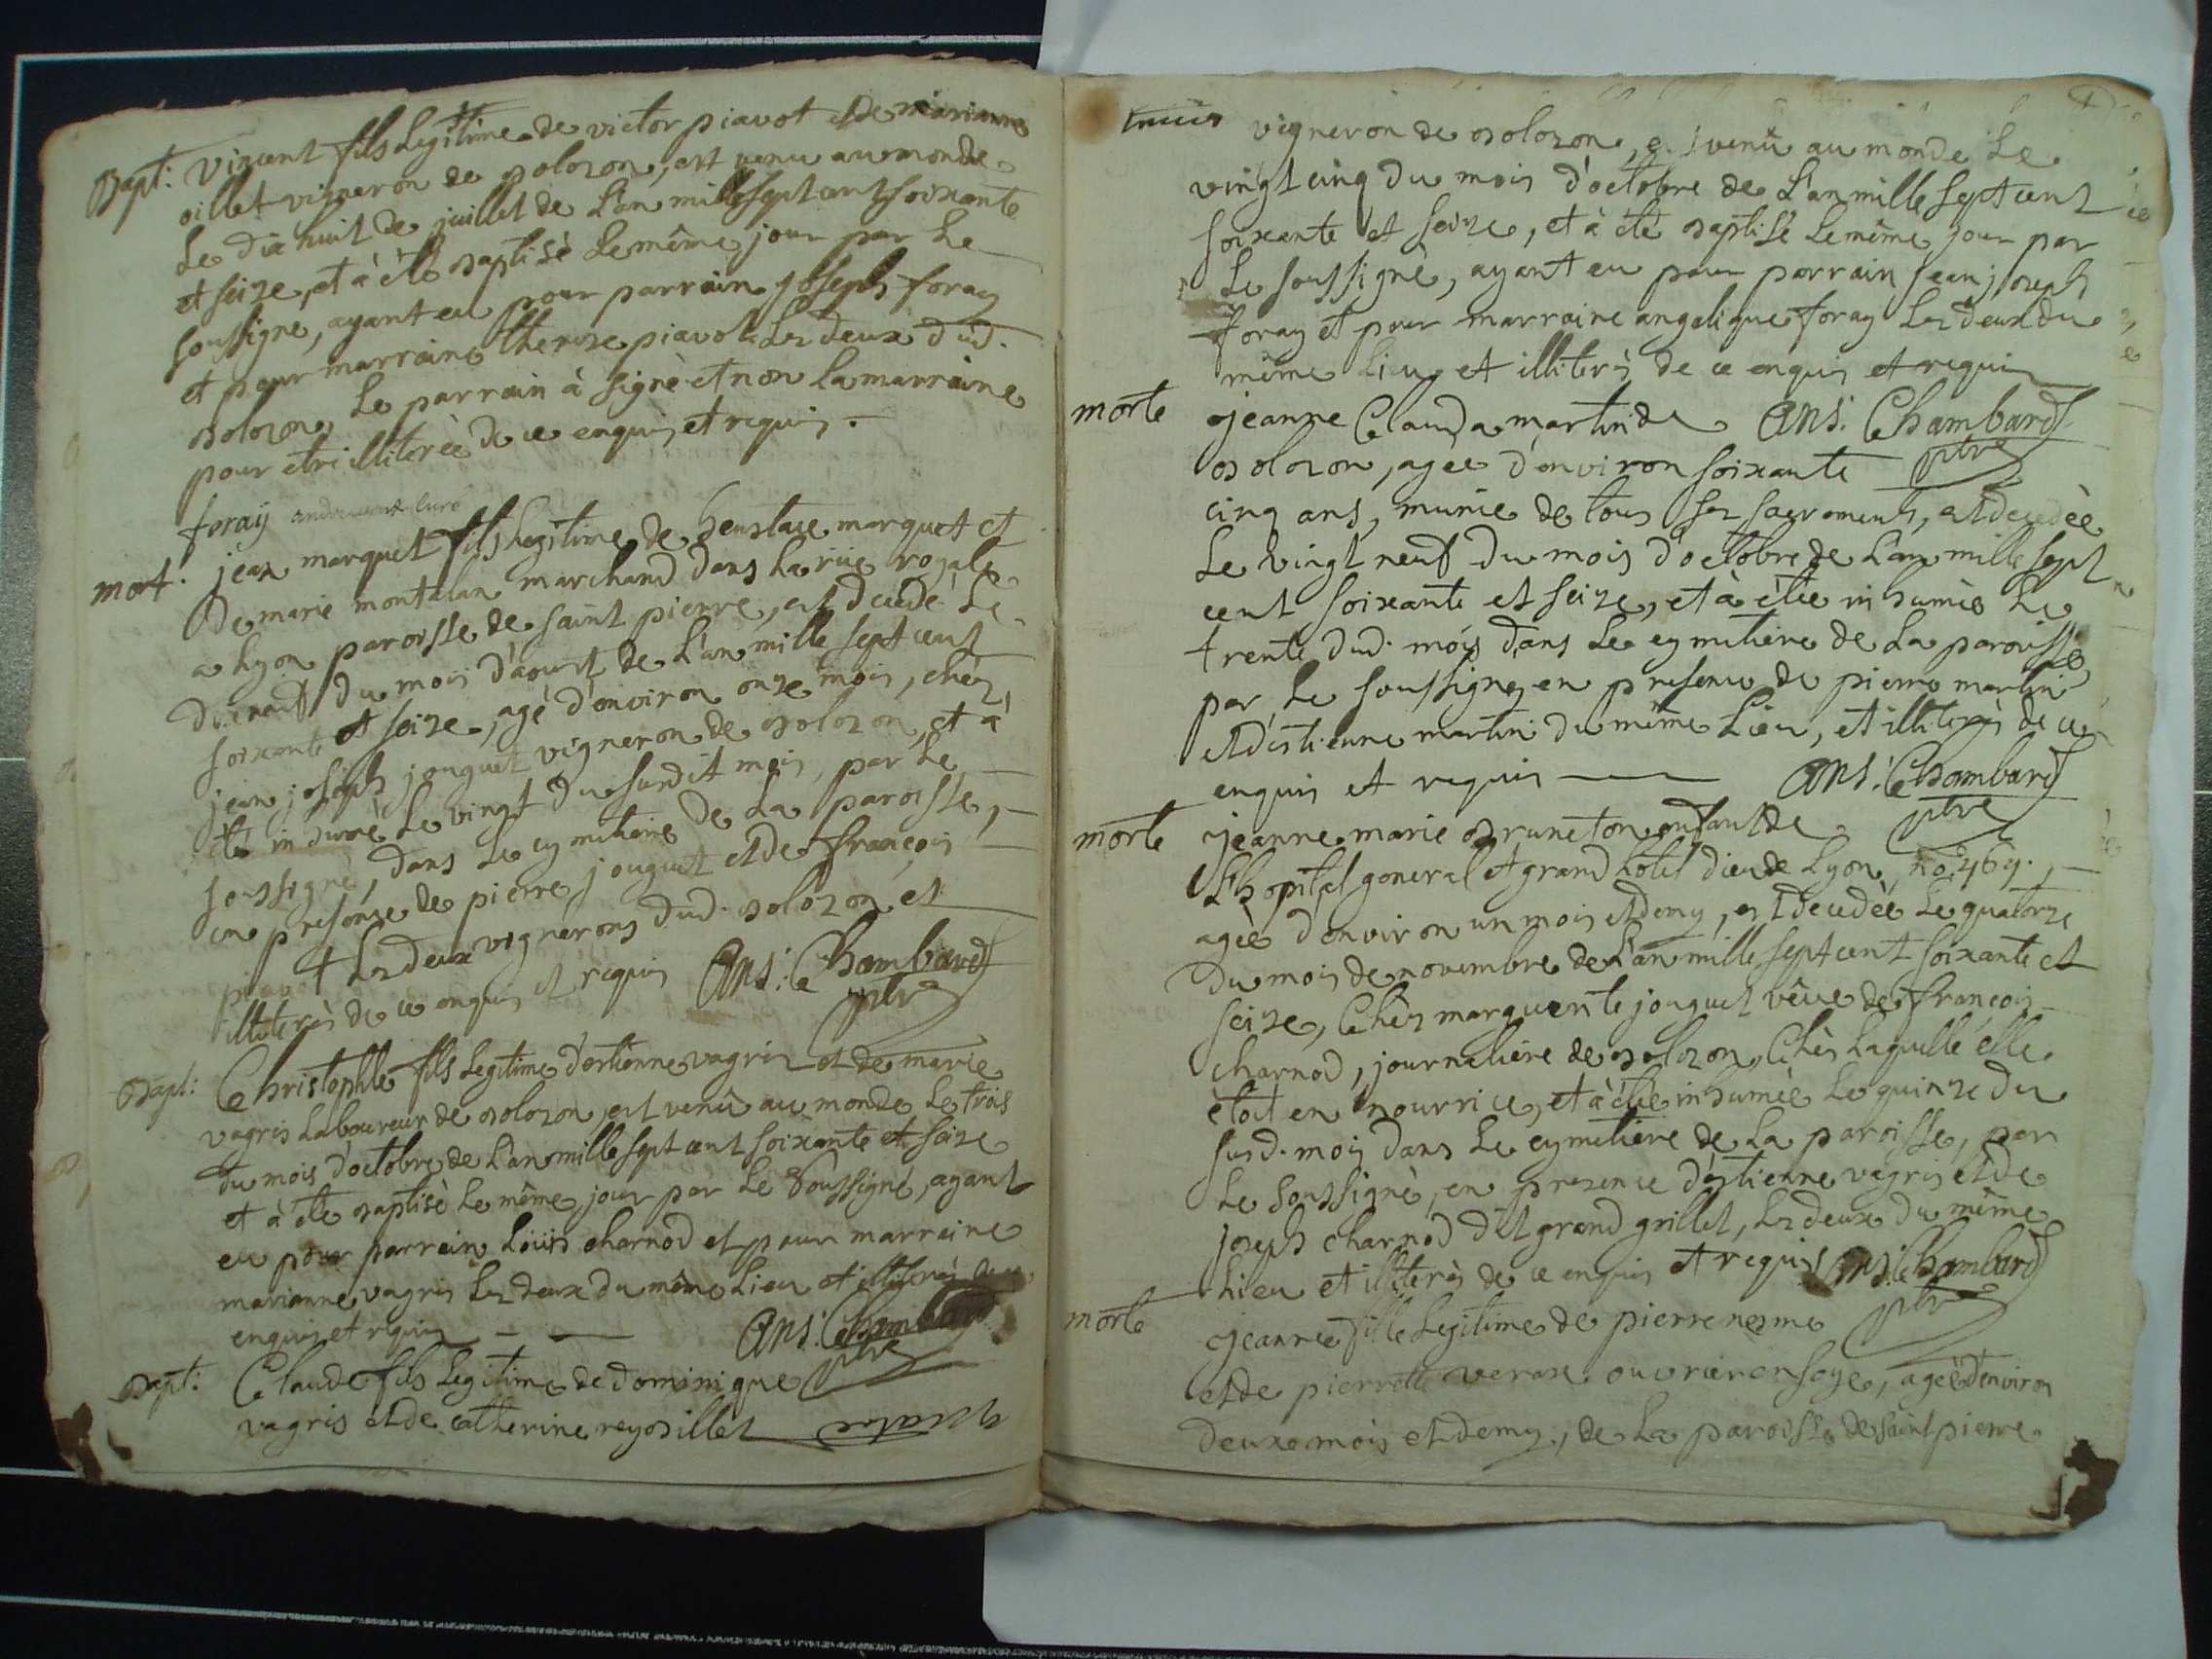 Bapt: Vincent fils Legitime de victor piavot et de marianne
billet vigneron de bolozon, est venu au monde
Le dix huit de juillet de L'an mille sept cent soixante
et seize, et à été baptisé Le même jour par Le
soussigné, ayant eu pour parrain joseph foray
et pour marraine therese piavot Les deux dud.
bolozon, Le parrain à signé et non La marraine
pour etre illiterée de ce enquis et requis.
foray
mort. jean marquet fils Legitime de heustace marquet et
De marie montalan marchand dans La rüe royale
a Lyon paroisse de saint pierre, est decedé Le
dixneuf du mois d'aoust de L'an mille sept cent
soixante et seize, agé d'environ onze mois, chéz
jean joseph jouguet vigneron de bolozon, et à
été inhumé Le vingt du susdit mois, par Le
soussigné, dans Le cymitiere de La paroisse,
en presense de pierre jouguet et de françois
piavot Les deux vignerons dud. bolozon et
illiterés de ce enquis et requis ans: Chambard
ptre
Bapt: Christophle fils Legitime d'estienne vagris et de marie
vagris Laboureur de bolozon, est venû au monde Le trois
du mois d'octobre de L'an mille sept cent soixante et seize
et à été baptisé Le même jour par Le Soussigné, ayant
eu pour parrain Loüis charnod et pour marraine
marianne vagris Les deux du même Lieu et illiterés de ce
enquis et requis ans: Chambard
ptre
Bapt: Claude fils Legitime de dominique
vagris et de catherine reybillet
vigneron de bolozon, est venû au monde Le
vingt cinq du mois d'octobre de L'an mille sept cent
soixante et seize, et à été baptisé Le même jour par
Le soussigné, ayant eu pour parrain jean joseph
foray et pour marraine angelique foray Les deux du
même Lieu et illiterés de ce enquis et requis
morte jeanne Clauda martin de ans: Chambard
bolozon, agée d'environ soixante ptre
cinq ans, munie de tous ses sacrements, est decedée
Le vingt neuf du mois d'octobre de L'an mille sept
cent soixante et seize, et à étée inhumée Le
trente dud. mois dans Le cymitiere de La paroisse
par Le soussigné, en presense de pierre martin
et d'estienne martin du même Lieu, et illiterés de ce
enquis et requis ans: Chambard
morte jeanne marie bruneton enfant de ptre
L'hopital general et grand hôtel dieu de Lyon, no. 469.,
agée d'environ un mois et demy, est decedée Le quatorze
du mois de novembre de L'an mille sept cent soixante et
seize, Chéz marguerite jouguet vêue de françois
charnod, journaliere de bolozon, Chés Laquelle elle
étoit en nourrice, et à étée inhumée Le quinze du
susd. mois dans Le cymitiere de La paroisse, par
Le Soussigné, en presence d'estienne vagris et de
joseph charnod dit grand grillet, Les deux du même
Lieu et illiterés de ce enquis et requis ans: Chambard
morte jeanne fille Legitime de pierre nesme ptre
et de pierrette ouvrier en soye, agée d'environ
deux mois et demy, de La paroisse de saint pierre